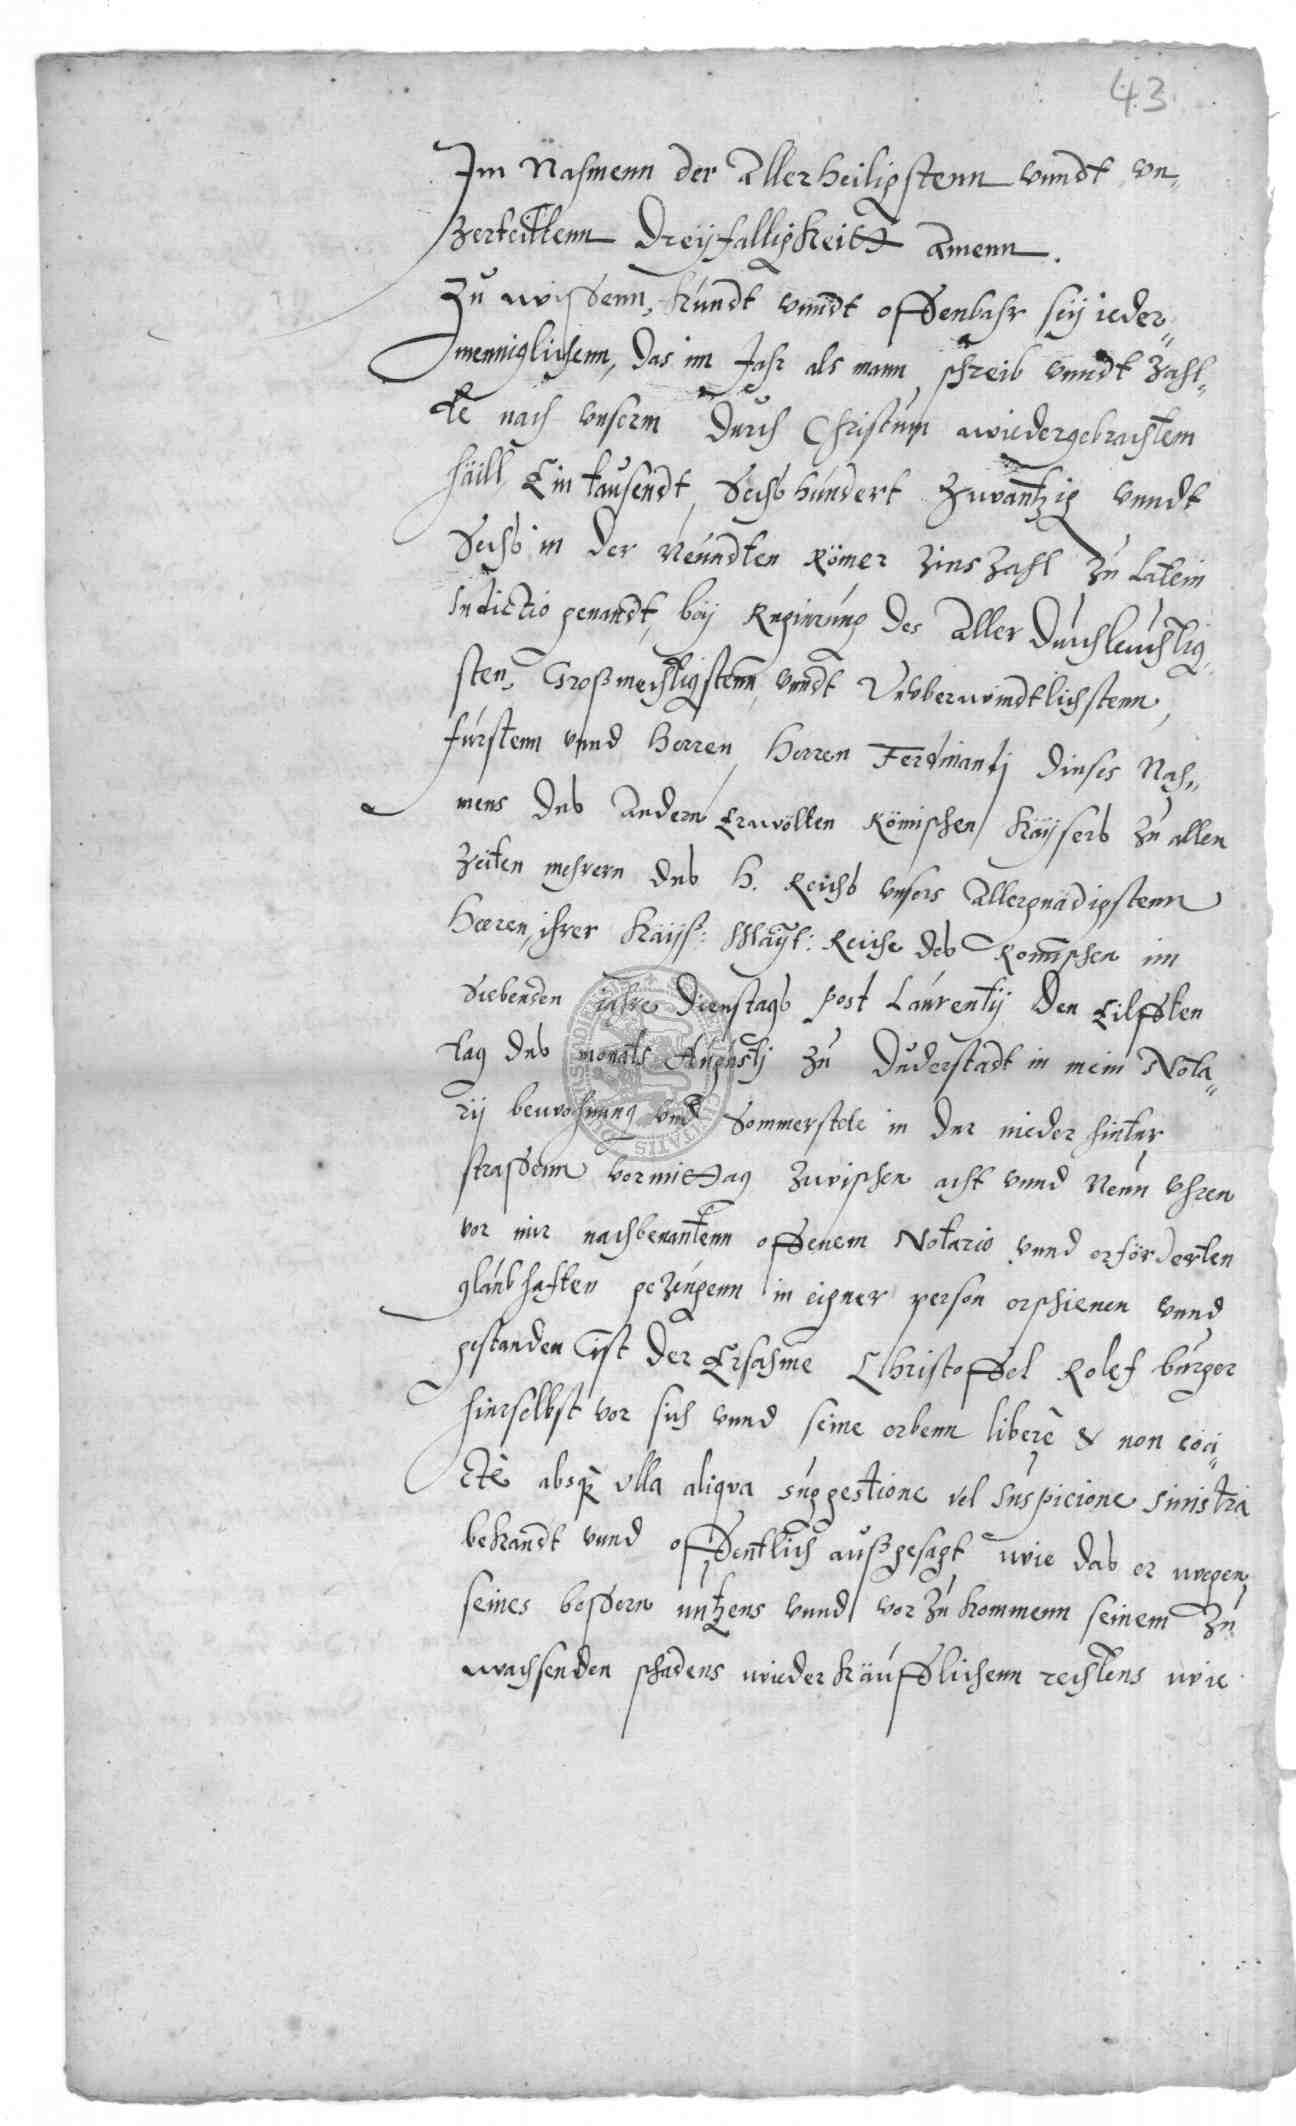 43
Im Nahmenn der Allerheiligstenn vnndt vn„
zerteiltenn Dreÿfalligkeitt Amenn.
Zu wissenn, kundt vnndt offenbahr seÿ ieder„
menniglichenn, das im Jahr als mann schreib vnndt Zahl„
te nach vnserm durch Christum wiedergebrachtem
häill, Ein tausendt, Sechs hundert Zwantzig vnndt
Sechs in der Neundten Römer Zins Zahl zu Latein
Indictio genandt, beÿ Regierung des Aller Durchleuchtig„
sten, Großmechtigstenn, vnndt Vnvberwindtlichstenn,
fürstenn vnnd Herren, Herren Ferdinandj dieses Nah„
mens des Andern Erwölten Römischen Käÿsers zu allen
Zeiten mehrern des H. Reichs vnsers Allergnädigstenn
Heren, ihrer Käÿß: Maÿt: Reiche des Romischen im
Siebenden jahre Dienstags post Laurentij den Eilfften
tag des monats Augustj zu Duderstadt in mein Nota„
rij bewohnung vnd Sommerstele in der nieder hinter
strassenn vormittag zwischen acht vnnd Neun vhren
vor mir nachbenantenn offenem Notario vnnd erförderten
glaubhaften gezeugenn in eigner person erschienen vnnd
gestanden ist der Ersahme Christoffel Rolef burger
hierselbst vor sich vnnd seine erbenn liberè & non coa„
ctè absq̀ vlla aliqva suggestione vel suspicione sinistra
bekandt vnnd offentlich außgesagt wie das er wegen
seines bessern nutzens vnnd vorzukommenn seinem zu
wachsenden schadens wiederkäufflichenn rechtens wie